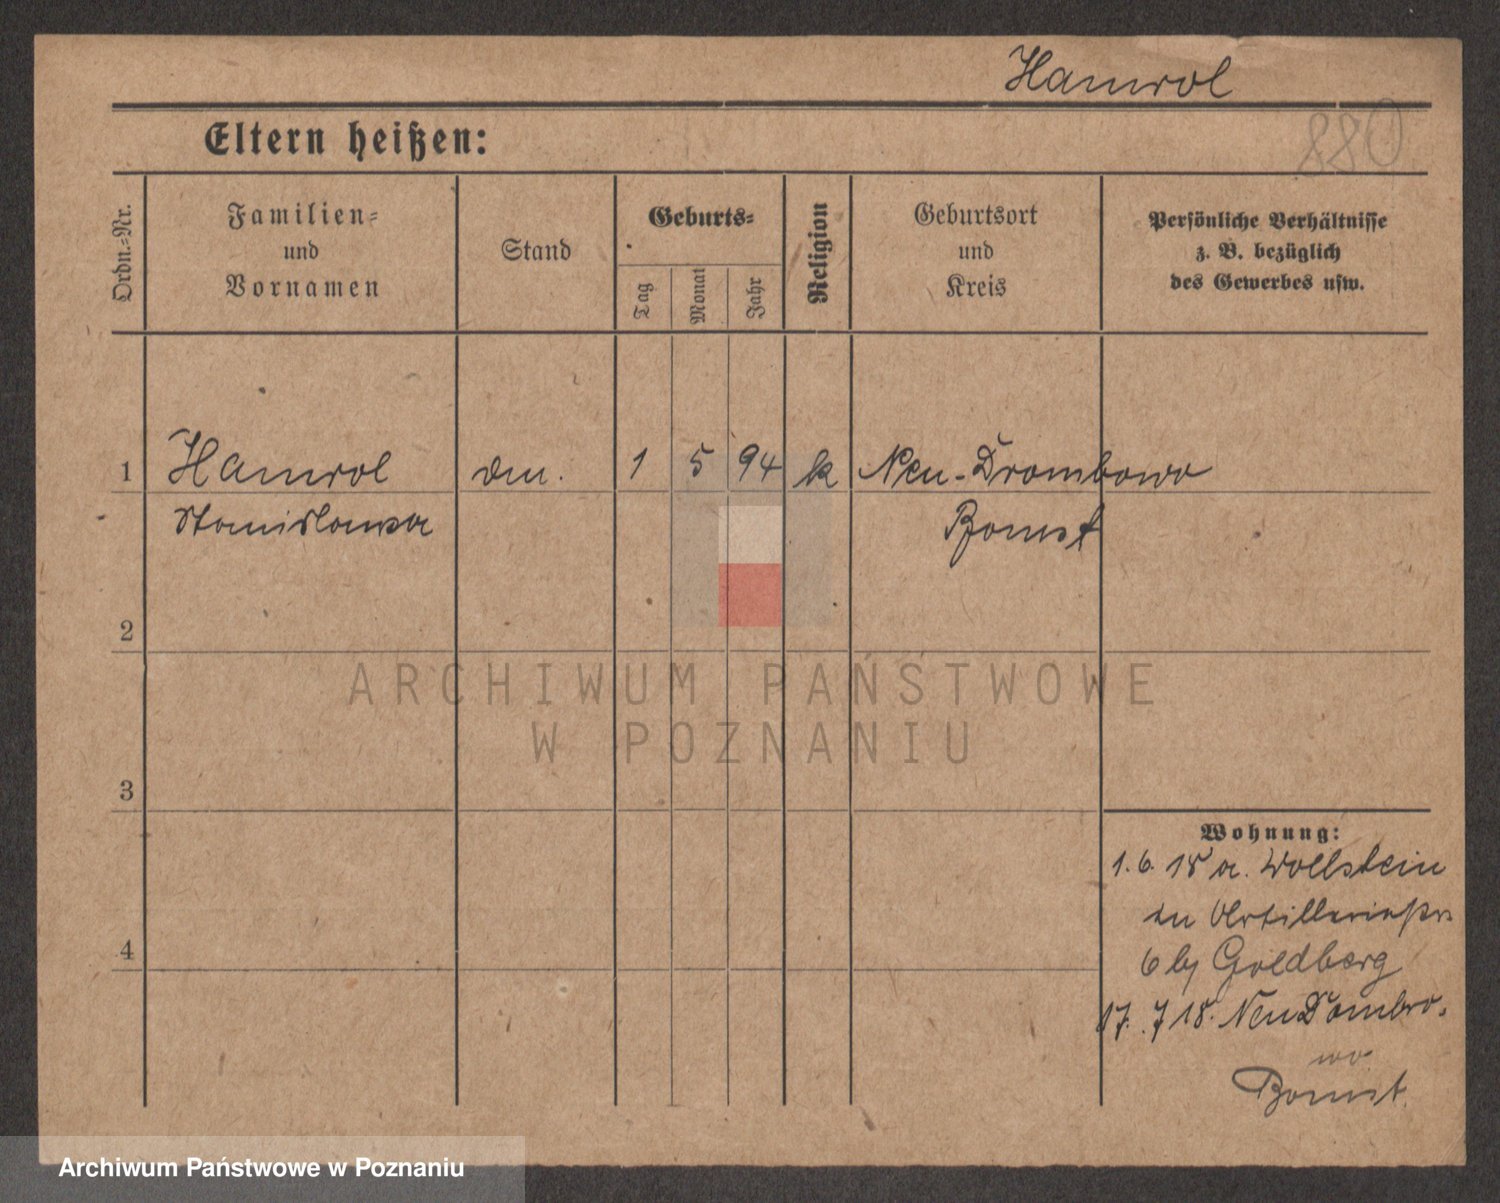 Hamrol
880
Eltern heißen:
Ordn.-Nr.
Familien-
und
Vornamen
Stand
Geburts-
Tag
Monat
Jahr
Religion
Geburtsort
und
Kreis
Persönliche Verhältnisse
z. B. bezüglich
des Gewerbes usw.
1 Hamrol 1 5 94 k Neu-Drombowo
Stanislawa Bomst
2
ARCHIWUM PAŃSTWOWE
W POZNANIU
3
Wohnung:
1.6.18 a. Wollstein
Artilleriestr
6 bj Goldberg
4
17.7 18. Neu Dombro-
wo
Bomst.
Archiwum Państwowe w Poznaniu